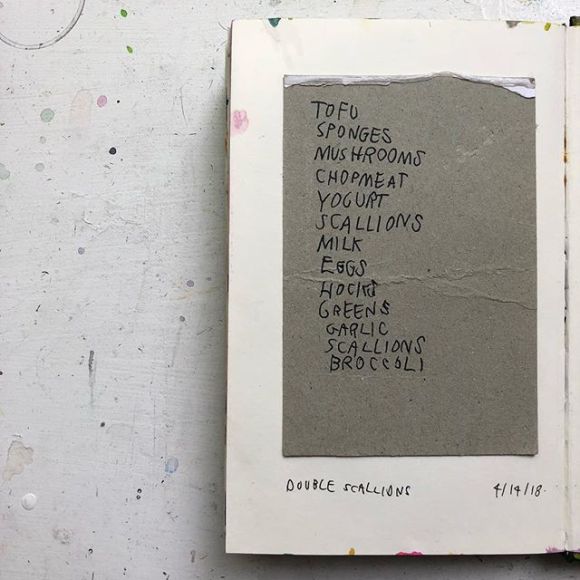 TOFU
SPONGES
MUSHROOMS
CHOPMEAT
YOGURT
SCALLIONS
MILK
EGGS
HOCKS
GREENS
GARLIC
SCALLIONS
BROCCOLI
DOUBLE SCALLIONS 4/14/18.